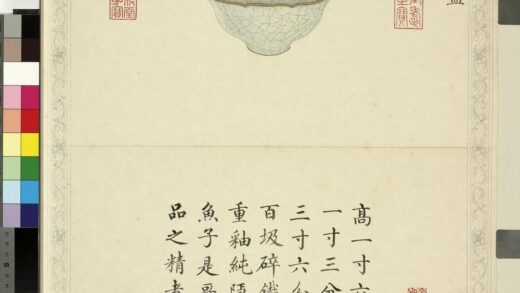 高一寸六
一寸三分
三寸六分
百圾碎鐵
重釉純
魚子是哥
品之精者